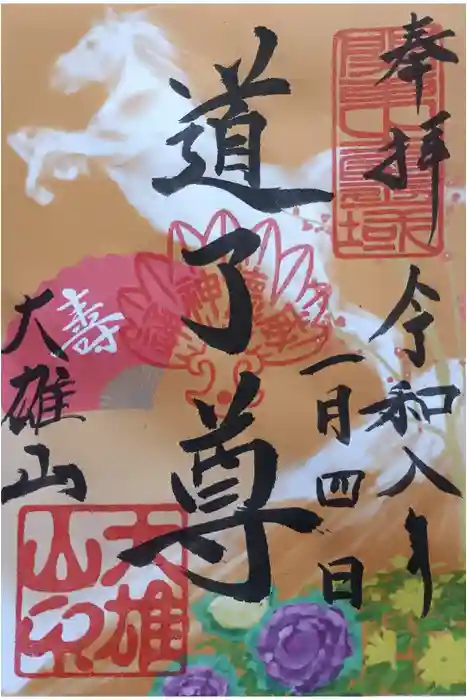 奉拝
令和八年
一月四日
道了尊
大雄山
寿
大雄
山印